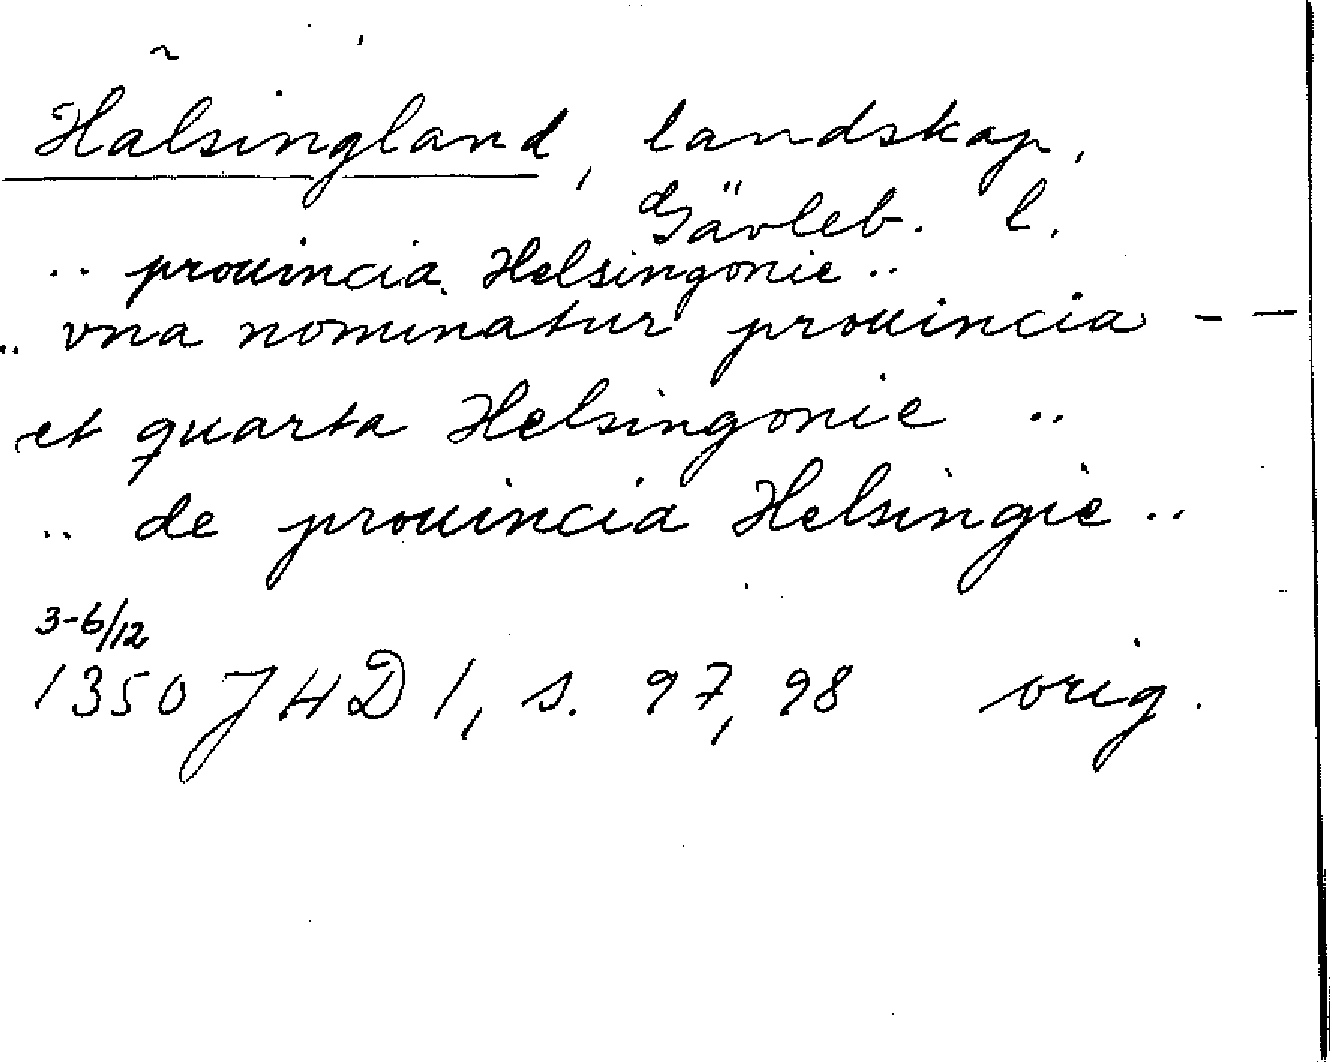 Hälsingland, landskap,
Gävleb. l.
.. prouincia Helsingonie ..
.. vna nominatur prouincia - -
et quarta Helsingonie ..
.. de prouincia Helsingie ..
3-6/12
1350 JHD 1, s. 97, 98 orig.